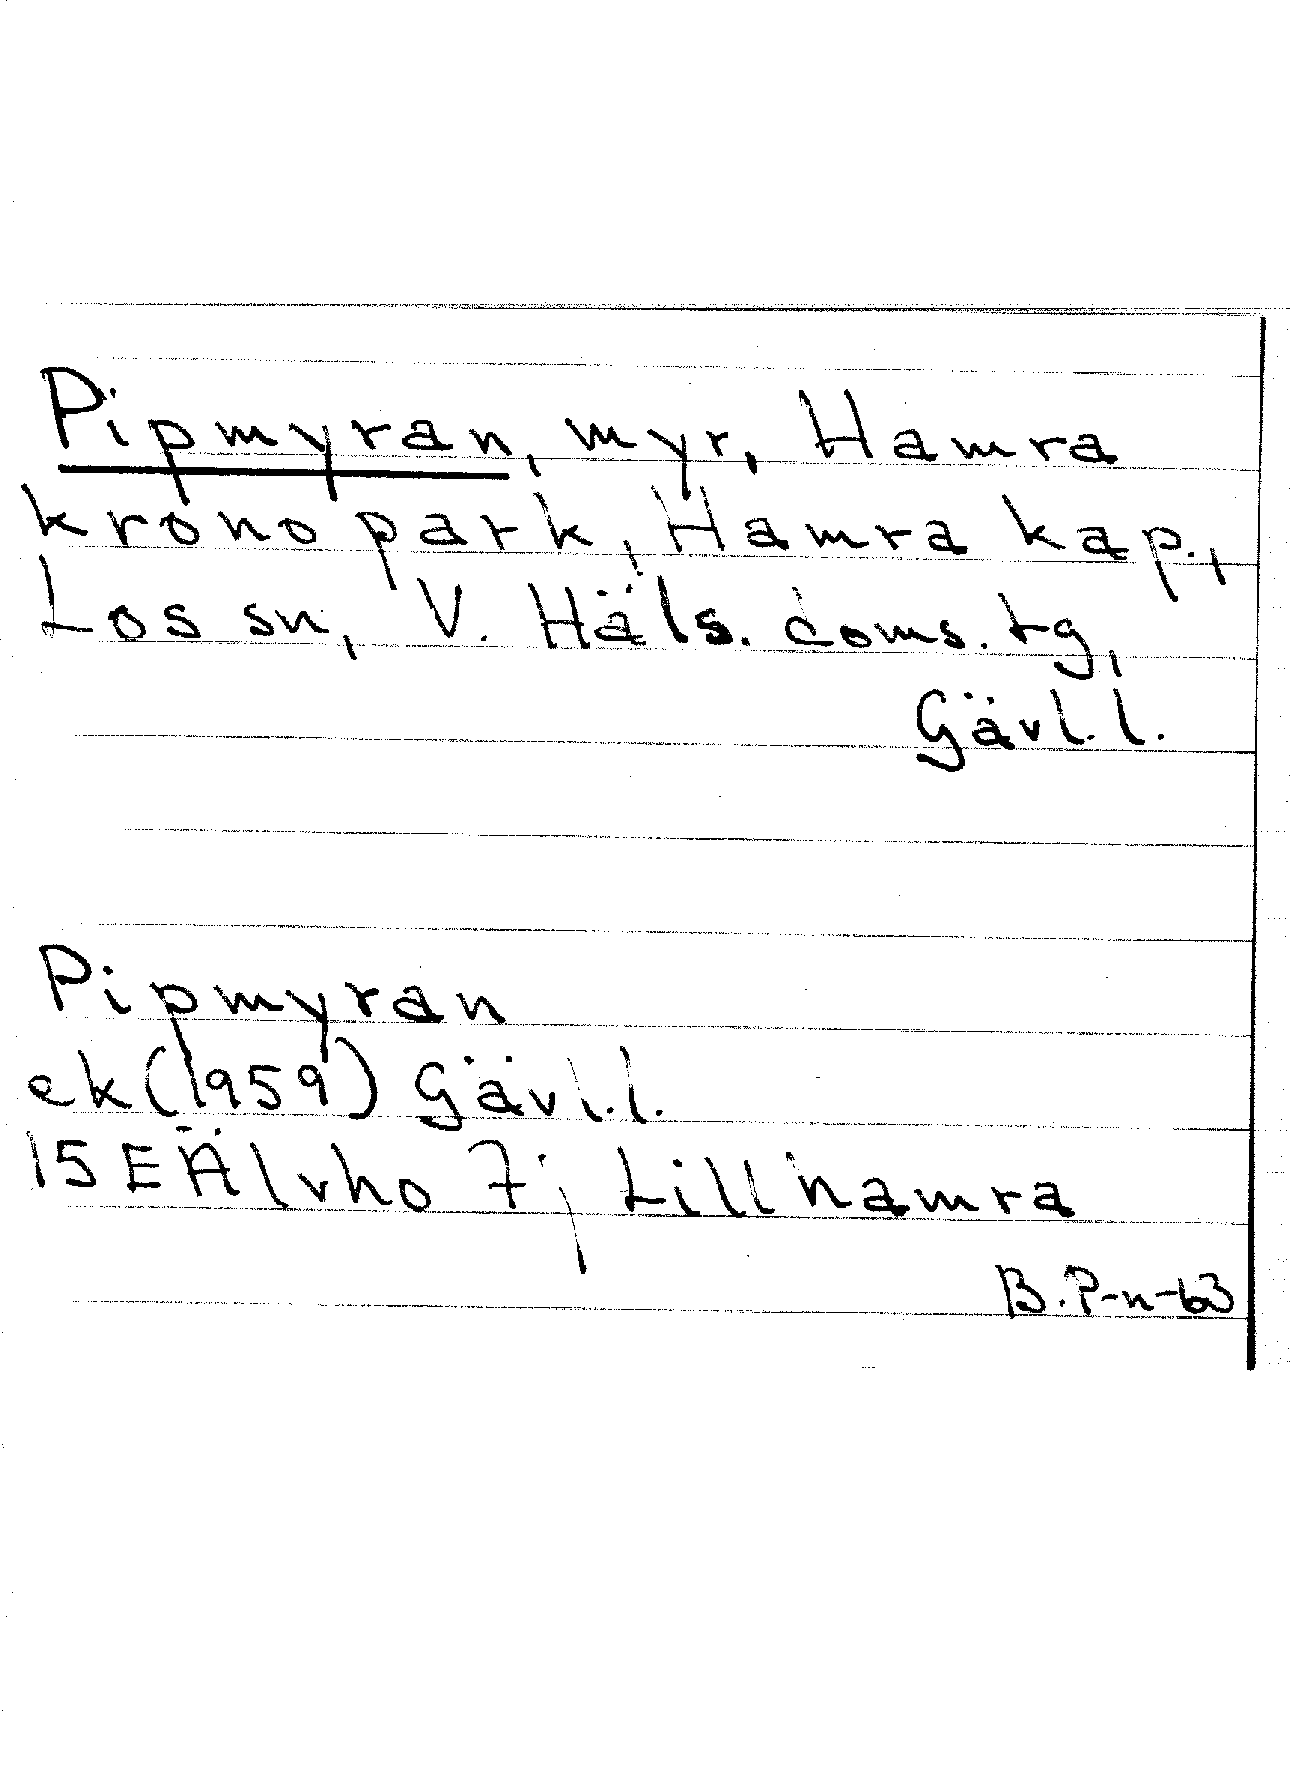 Pipmyran, myr, Hamra
kronopark, Hamra kap.,
Los sn, V. Häls. doms. tg,
Gävl. l.
Pipmyran
ek (1959) Gävl. l.
15 E Älvho 7; Lillhamra
B. P-n-63